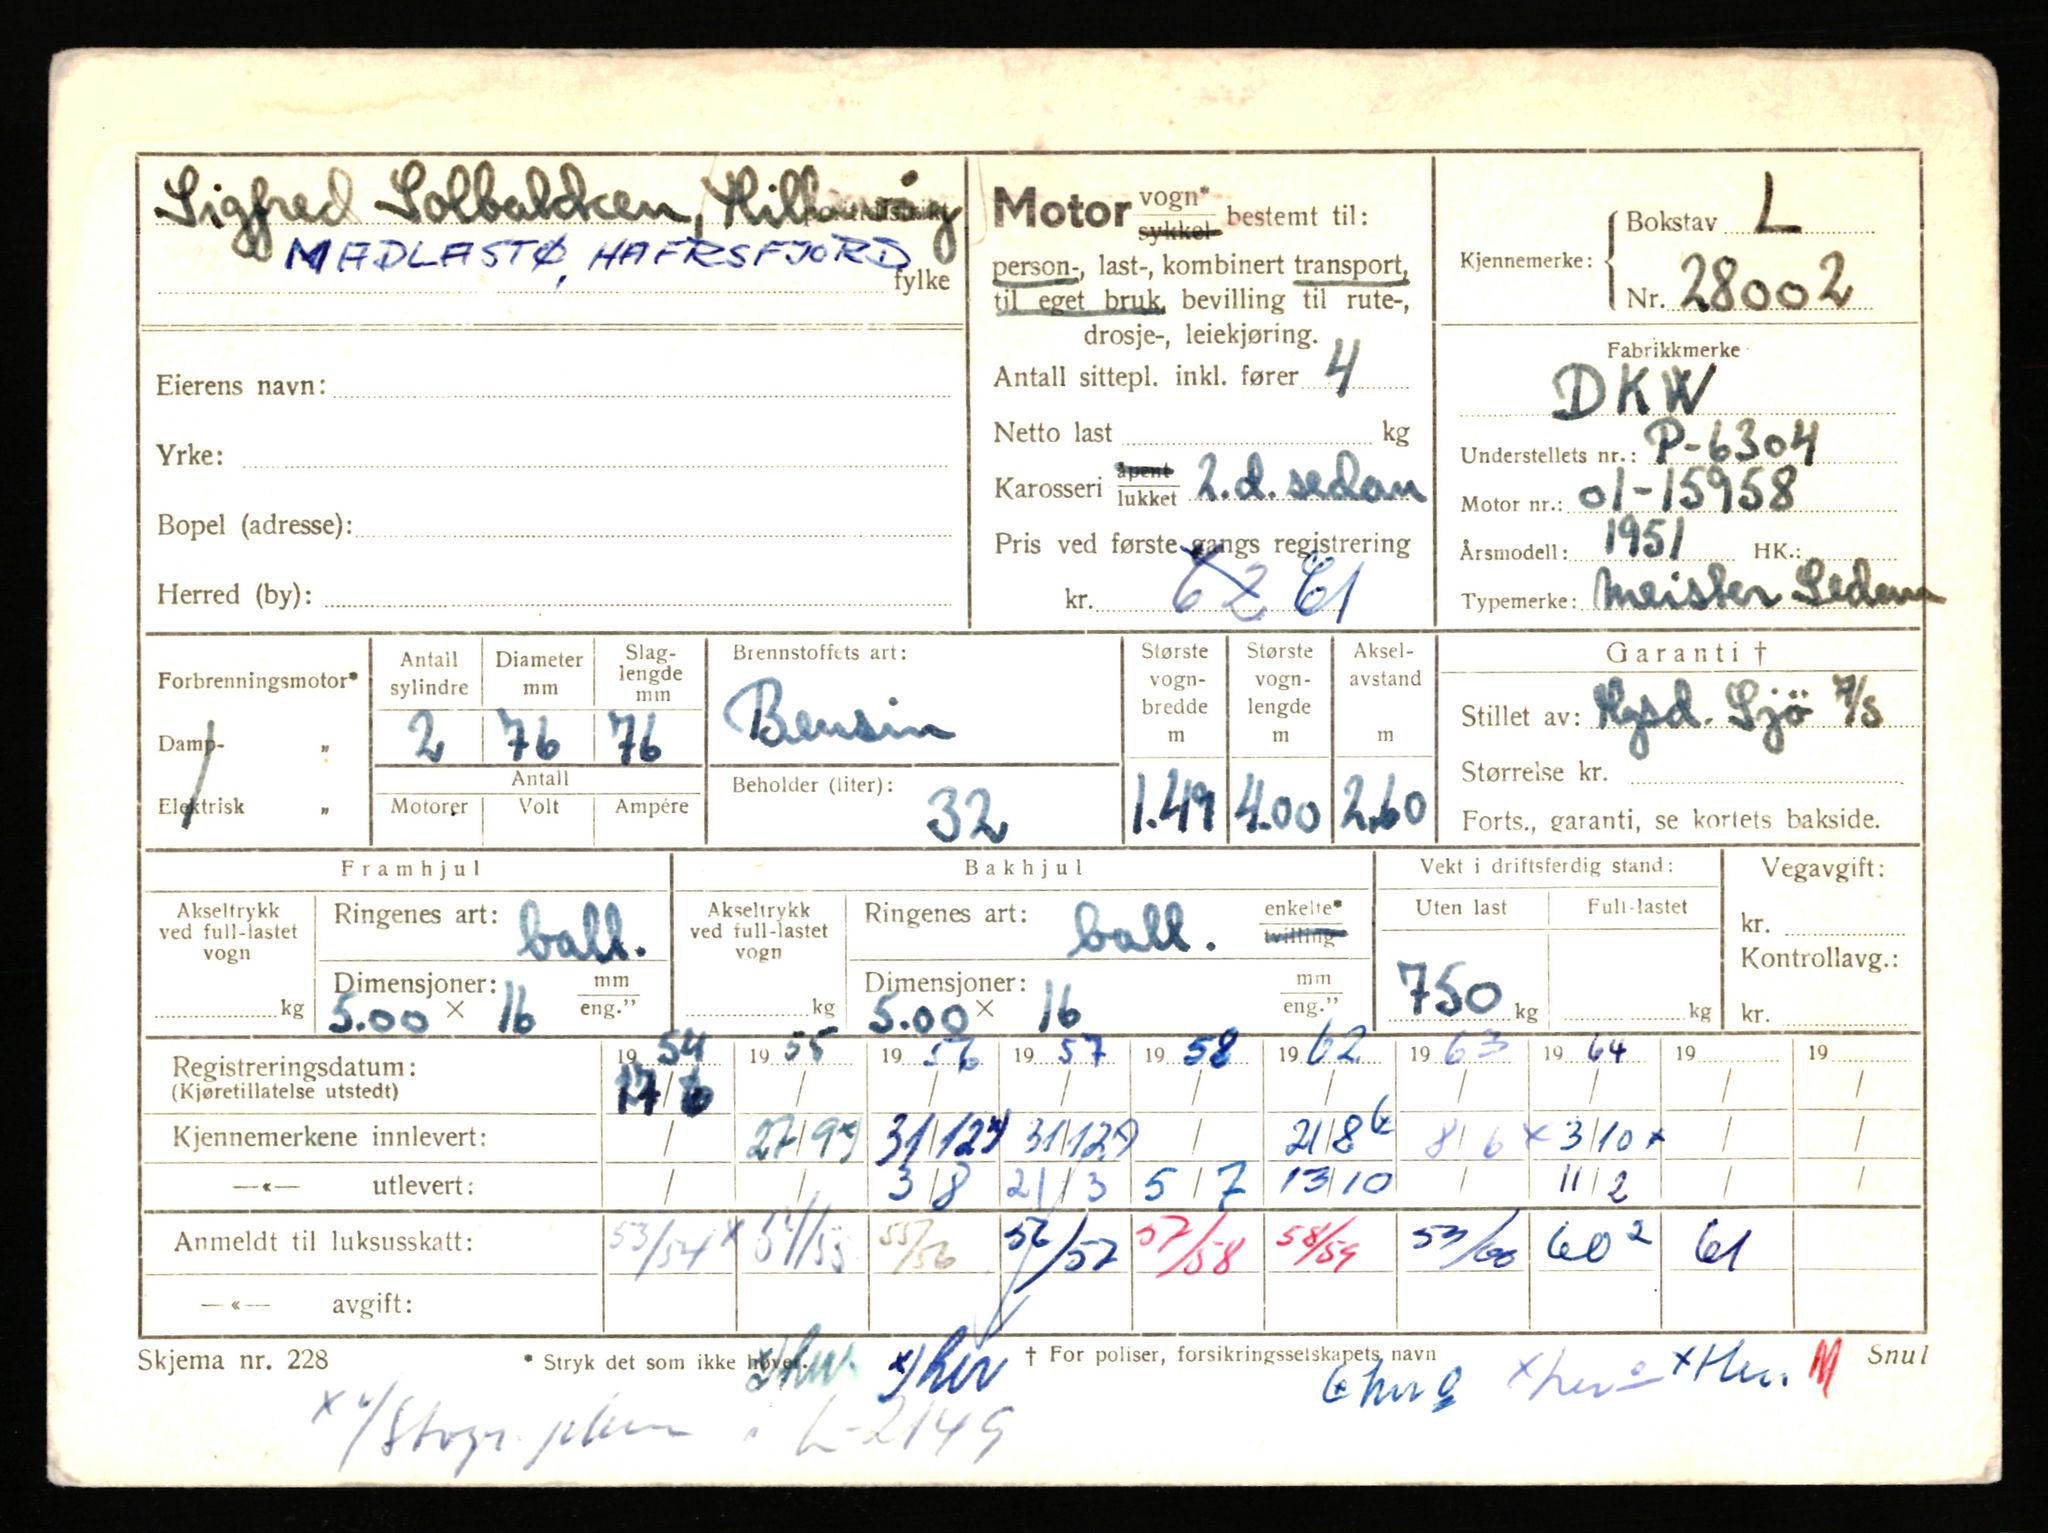 Sigfred Solbakken, Hillevåg
MADLASTØ, HAFRSFJORD
fylke
Eierens navn:
Yrke:
Bopel (adresse):
Herred (by):
Motor vogn* sykkel bestemt til:
person-, last-, kombinert transport,
til eget bruk, bevilling til rute-,
drosje-, leiekjøring.
Antall sittepl. inkl. fører 4
Netto last kg
Karosseri åpent lukket 2.d. sedan
Pris ved første gangs registrering
kr. 62 61
Kjennemerke: Bokstav L
Nr. 28002
Fabrikkmerke
DKW
Understellets nr.: P-6304
Motor nr.: 01-15958
Årsmodell: 1951 HK.:
Typemerke: Meister Sedan
Forbrenningsmotor*
Damp- „
Elektrisk „
Antall sylindre Diameter mm Slaglengde mm
2 76 76
Antall
Motorer Volt Ampére
Brennstoffets art:
Bensin
Beholder (liter):
32
Største vognbredde m 1.49
Største vognlengde m 4.00
Akselavstand m 2.60
Garanti †
Stillet av: Hgsd. Sjö 7/5
Størrelse kr.
Forts., garanti, se kortets bakside.
Framhjul
Akseltrykk ved full-lastet vogn kg
Ringenes art: ball.
Dimensjoner: 5.00 × 16 mm eng.”
Bakhjul
Akseltrykk ved full-lastet vogn kg
Ringenes art: ball. enkelte* tvilling
Dimensjoner: 5.00 × 16 mm eng.”
Vekt i driftsferdig stand:
Uten last Full-lastet
750 kg kg
Vegavgift:
kr.
Kontrollavg.:
kr.
Registreringsdatum: 1954 1955 1956 1957 1958 1962 1963 1964 19 19
(Kjøretillatelse utstedt) 17/6 / / / / / / / / /
Kjennemerkene innlevert: / 27/9 x) 31/12 x) 31/12 x) / 21/8 6 8/6 x 3/10 x / /
—«— utlevert: / / 3/8 21/3 5/7 13/10 / 11/2 / /
Anmeldt til luksusskatt: 53/54 x 54/55 55/56 56/57 57/58 58/59 53/60 60 2 61
—«— avgift:
Skjema nr. 228 * Stryk det som ikke høver. † For poliser, forsikringsselskapets navn Snul
x) hev. x) hev x hev x Hev. M
L-2149